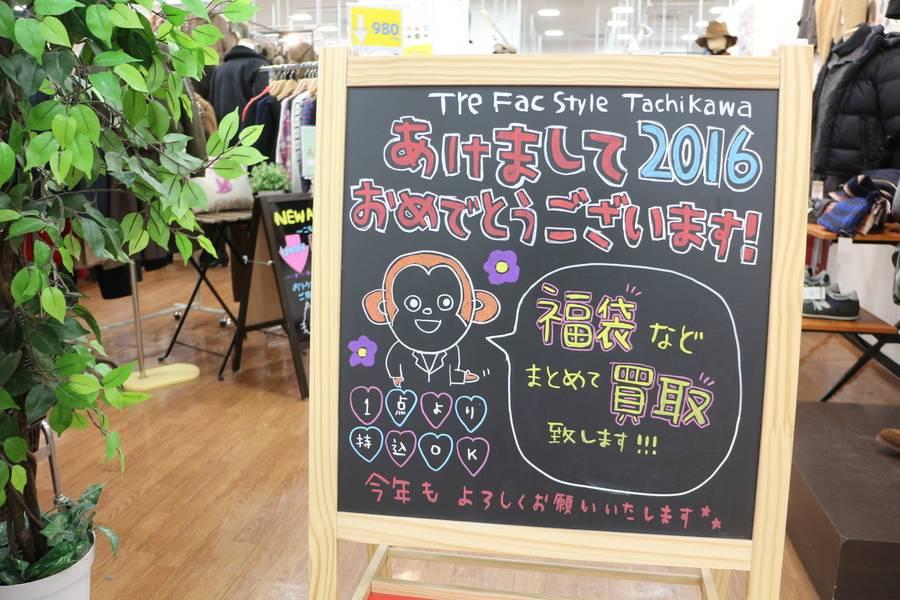 980
Tre Fac Style Tachikawa
あけまして 2016
おめでとうございます!
福袋 など
まとめて 買取
致します!!!
1点より
持込OK
今年も よろしくお願いいたします